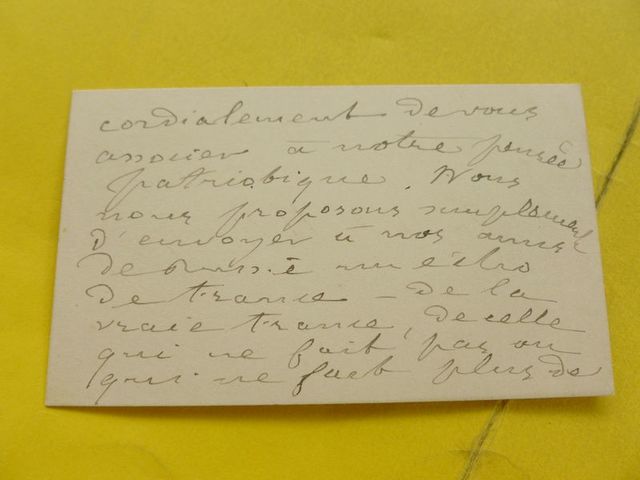 cordialement de vous
associer à notre pensée
patriotique. Nous
nous proposons simplement
d'envoyer à nos amis
de Russie un écho
de France – de la
vraie France, de celle
qui ne fait pas ou
qui ne fait plus de